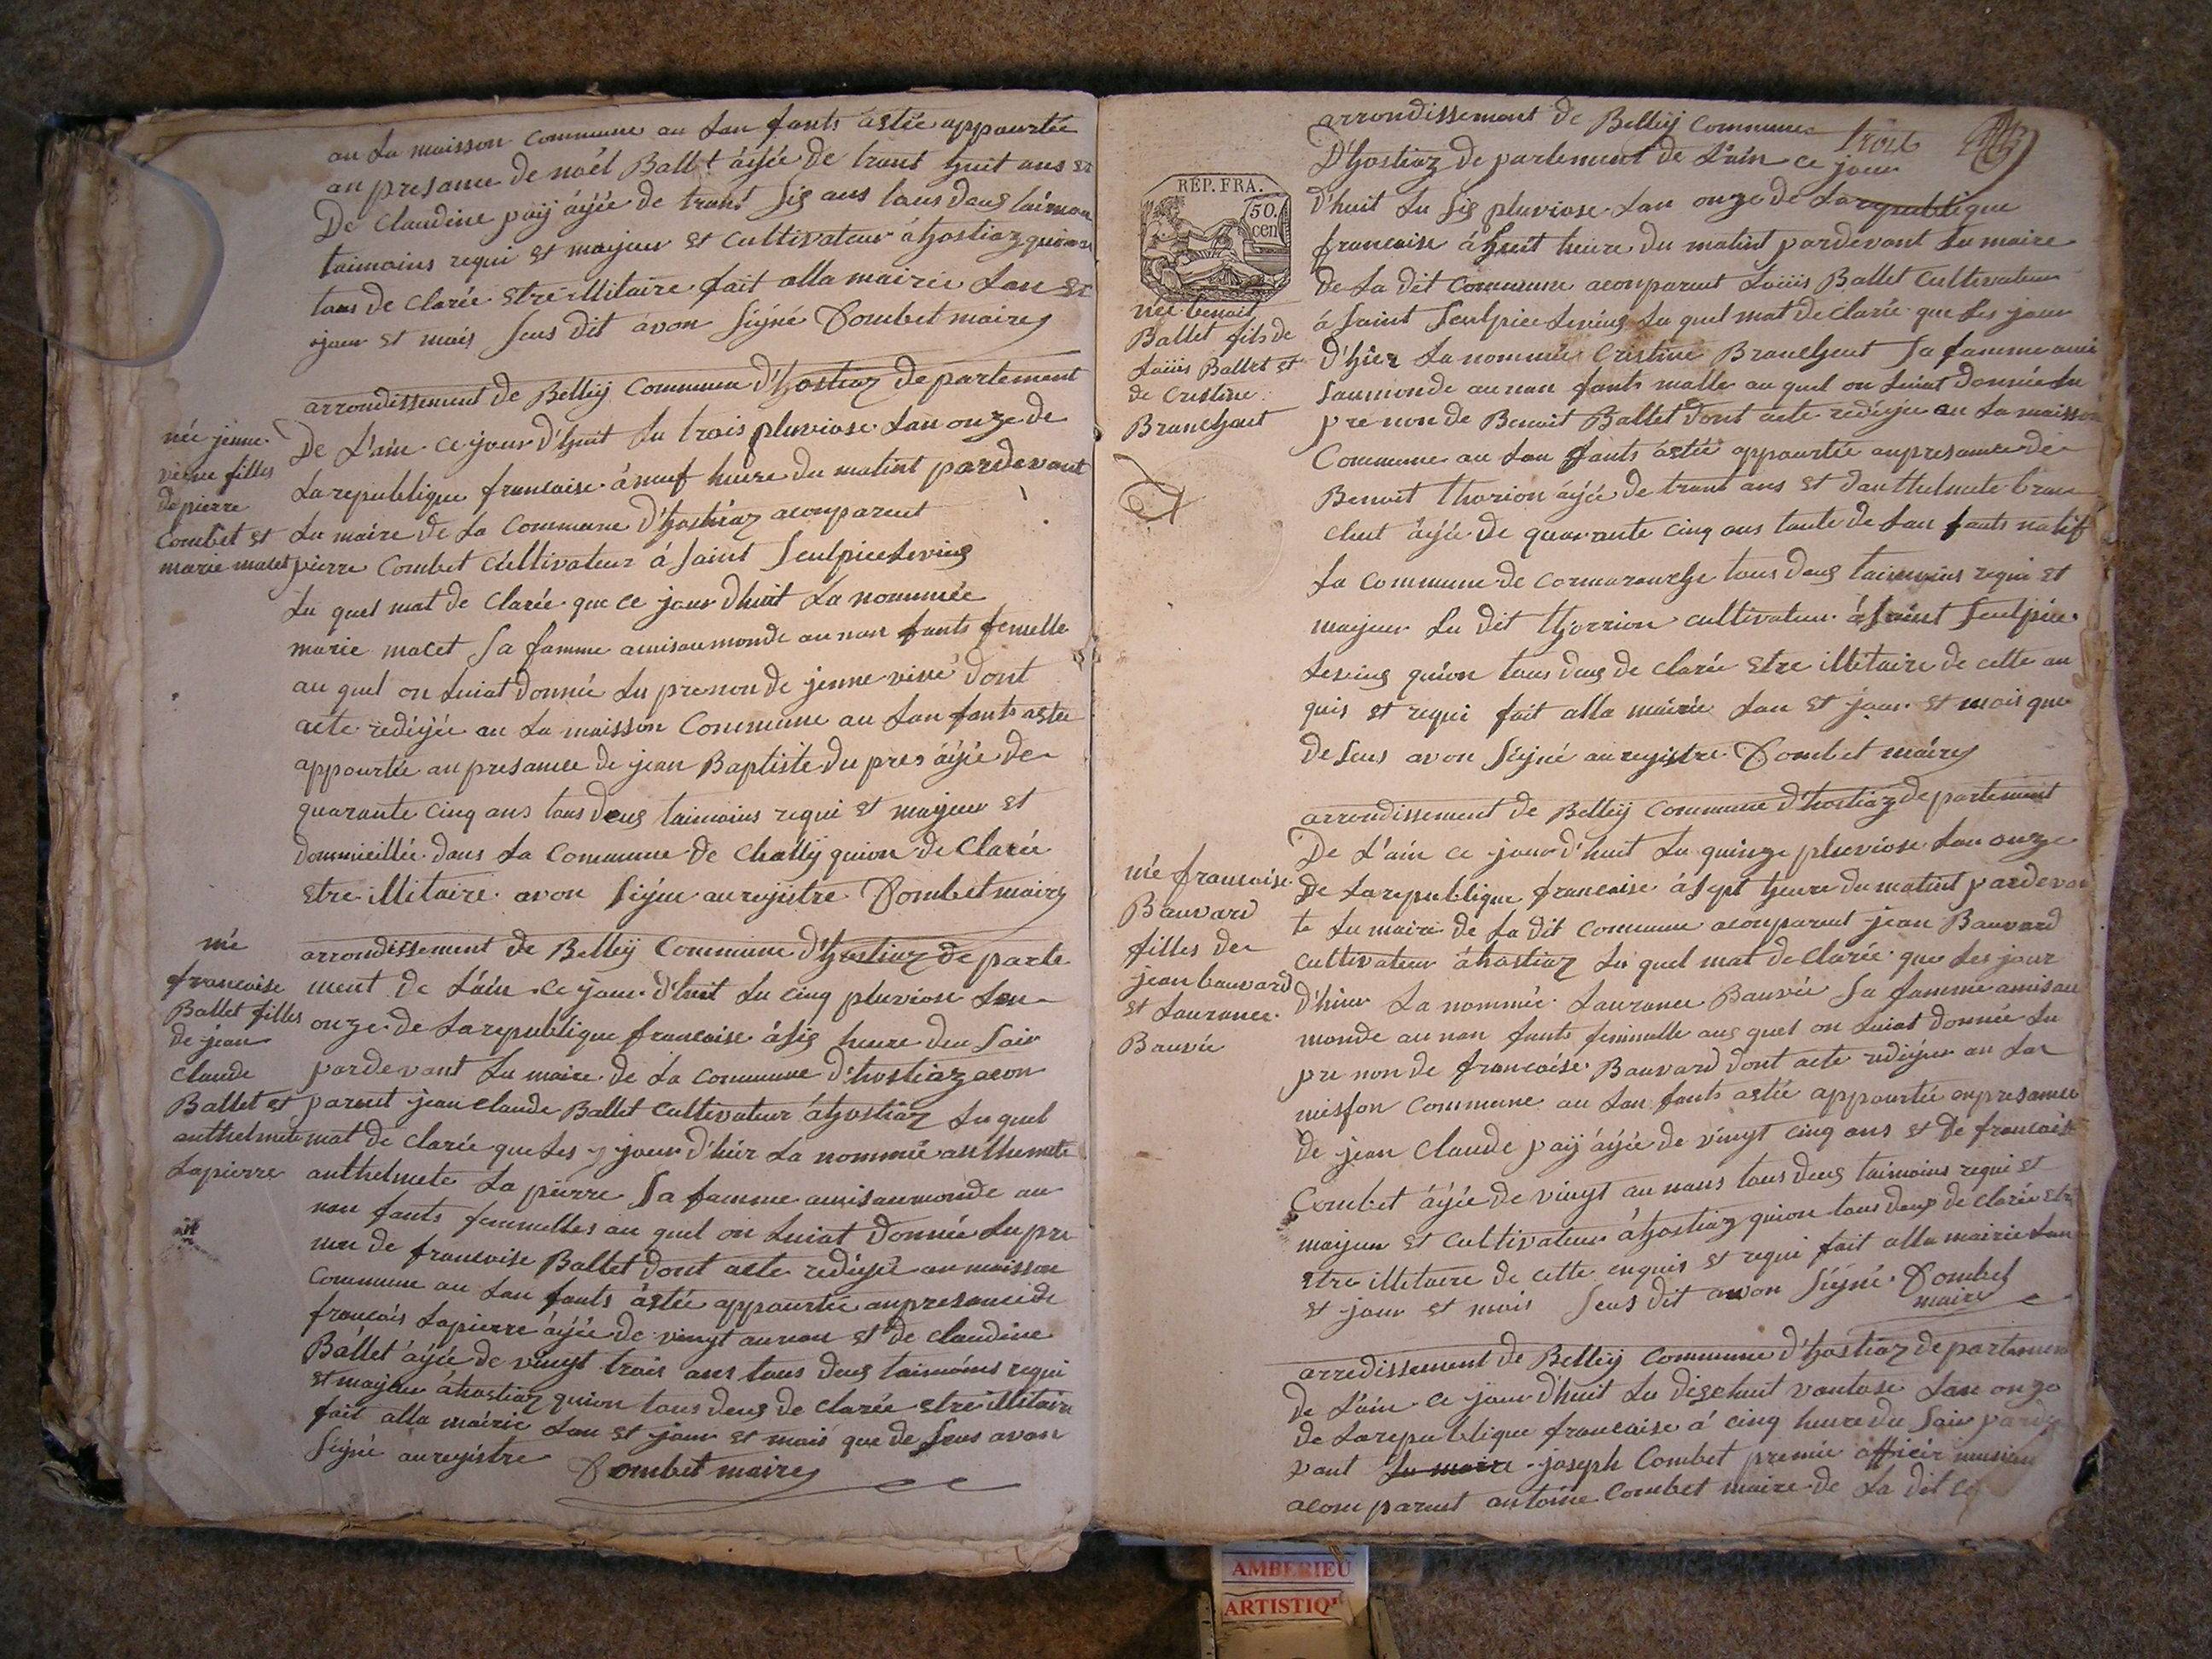 au La maisson Commune au Lan fants astée appourtée
an presance de noél Ballet áyée de trant huit ans et
De Claudine paÿ áyée de trant sis ans tous deus
taimoins requi et majeur et Cultivateur á hostiaz
tous de Clarée etre illitaire fait alla mairie Lan et
jour et mois sens dit avon signé Combet maire
arrondissement de Belleÿ Commune d'hostiaz departement
De L'ain ce jour d'huit Lu trois pluviose Lan onze de
La republique francaise á neuf heure du matint pardevant
Lu maire de La Commune d'hostiaz aconpareut
pierre Combet Cultivateur á Saint Seulpice Levieus
Lu quel mat de Clarée que ce jour d'huit La nommée
marie macet sa famme amisaumonde au nan fants femelle
au quel on Luiat donnée Lu prenon de jenne vivé dont
acte redéyée au La maisson Commune au Lan fants astée
appourtée an presance de jean Baptiste Du pres áyée de
quarante cinq ans tous deus taimoins requi et majeur et
dommieillée dans La Commune de Challÿ quion de Clarée
etre illitaire avon signe au rejistre Combet maire
née jenne
vivve filles
de pierre
Combet et
marie macet
arrondissement de Belleÿ Commune d'hostiaz de parte
ment de L'ain ce jour d'huit Lu cinq pluviose Lan
onze de La republique francaise á sis heure deu soir
pardevant Lu maire de La Commune d'hostiaz acon
pareut jean Claude Ballet Cultivateur á hostiaz Lu quel
mat de Clarée que Les jour d'hier La nommée anthemete
anthelmete La pierre sa famme amisaumonde au
nan fants femmelles au quel on Luiat donnée Lu pre
non de francoise Ballet dont acte redéyé au maisson
Commune au Lan fants ástée appourtée anpresance de
francois Lapierre áyée de vingt aunan et de Claudine
Ballet áyée de vingt trois ans tous deus taimoins requi
et majeur á hostiaz quion tous deus de Clarée etre illitaire
fait alla mairie Lan et jour et mois que de seus avon
signé au rejistre Combet maire
née
francoise
Ballet filles
de jean
Claude
Ballet et
anthelmete
Lapierre
trois
REP. FRA.
50.
cen
arrondissement de Belleÿ Commune
D'hostiaz de partement de L'ain ce jour
d'huit Lu sis pluviose Lan onze de La republique
francaise á huit heure du matint pardevant Lu maire
de La dit Commune aconpareut Loüis Ballet Cultivateur
á Saint Seulpice Levieus Lu quel mat de Clarée que Les jour
d'hier La nommée Cristine Branchent sa famme ami
saumonde au nan fants malle au quel on Luiat donnée Lu
pre non de Benoit Ballet dont acte redéyée au La maisson
Commune au Lan fants astée appourtée anpresance de
Benoit thorion áyée de trant ans et d'anthelmete bran
chut áyée de quarante cinq ans tante de Lan fants natif
La Commune de Cormaranche tous deus taimoins requi et
majeur Lu dit thorrion cultivateur á Saint Seulpice
Levieus quion tous deus de clarée etre illitaire de cette an
quis et requi fait alla mairie Lan et jour et mois que
de seus avon signé au rejistre Combet maire
née benoit
Ballet fils de
Loüis Ballet et
de Cristine
Branchent
arrondissement de Belleÿ Commune d'hostiaz departement
De L'ain ce jour d'huit Lu quinze pluviose Lan onze
de La republique francaise á sept heure du matint pardevan
te Lu maire de La dit Commune aconpareut jean Bauvard
cultivateur á hostiaz Lu quel mat de Clarée que Les jour
d'hier La nommée Laurance Bauvée sa famme amisau
monde au nan fants femmelle auquel on Luiat donnée Lu
pre non de francoise Bauvard dont acte redéyer au La
misson Commune au Lan fants astée appourtée anpresance
de jean Claude paÿ áyée de vingt cinq ans et de francoise
Combet áyée de vingt au nans tous deus taimoins requi et
majeur et Cultivateur á hostiaz quion tous deus de Clarée etre
etre illitaire de cette enquis et requi fait alla mairie Lan
et jour et mois seus dit avon signé Combet
maire
née francoise
Bauvard
filles de
jean bauvard
et Laurance
Bauvée
arredissement de Belleÿ Commune d'hostiaz departement
de L'ain ce jour d'huit Lu dischuit vantose Lan onze
de La republique francaise á cinq heure du soir parde
vant Lu maire joseph Combet premie officir
acom pareut antoine Combet maire de La dit
AMBERIEU
ARTISTIQ